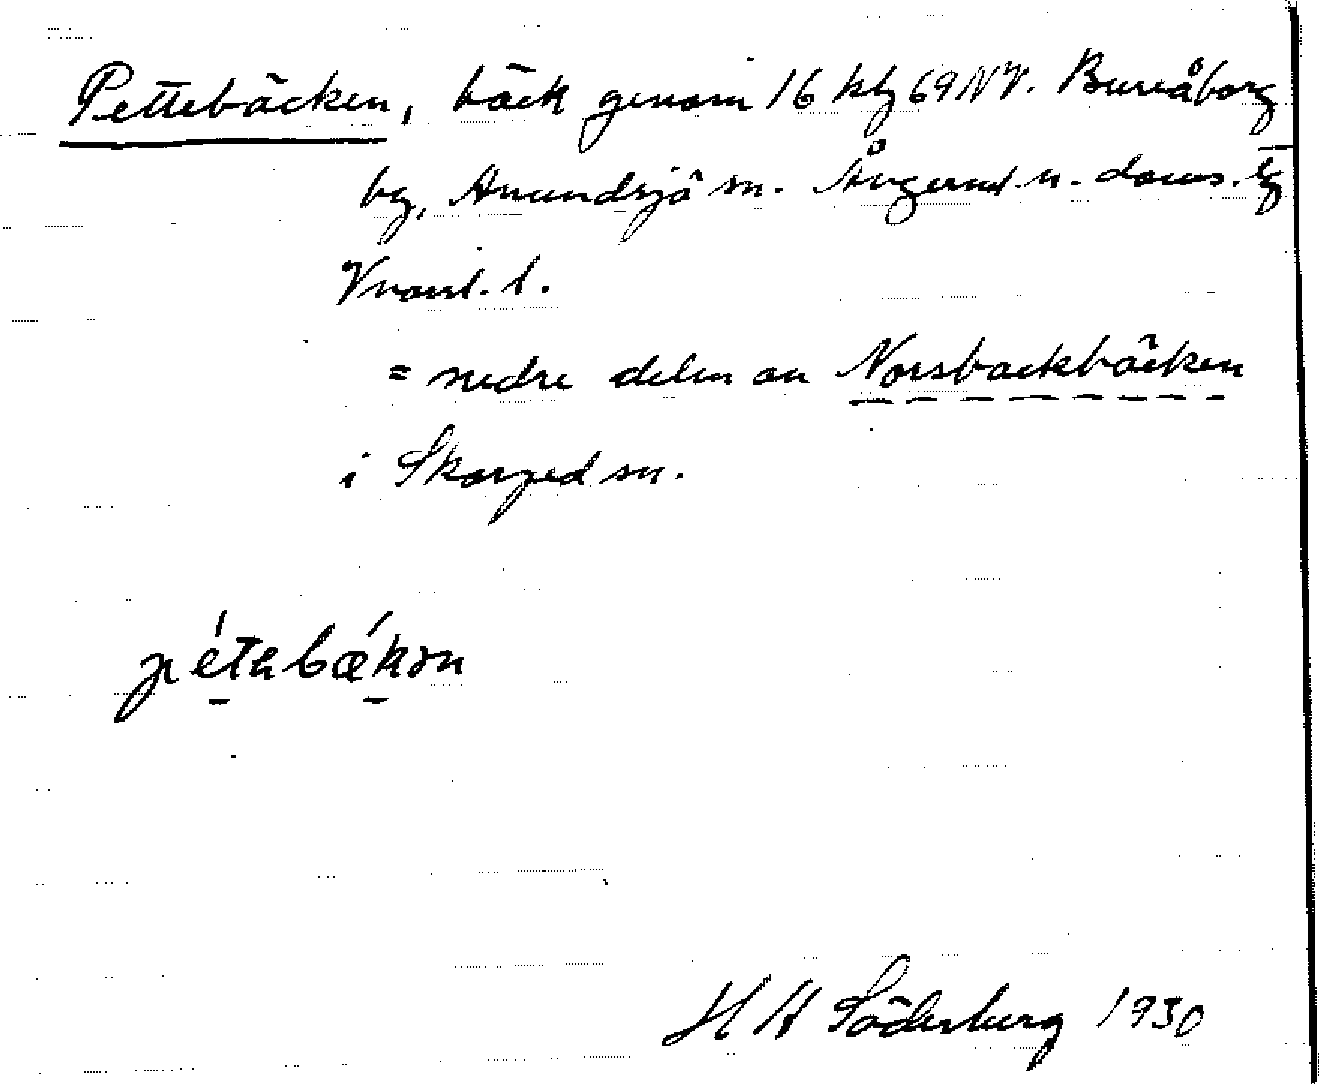 Pettebäcken, bäck genom 16 kbl 69NV. Bureåborg
by, Anundsjö sn. Ångerml n. doms. lg
Vnorrl. l.
= nedre delen av Norsbackbäcken
i Skorped sn.
pétabǽkən
H H Söderberg 1930